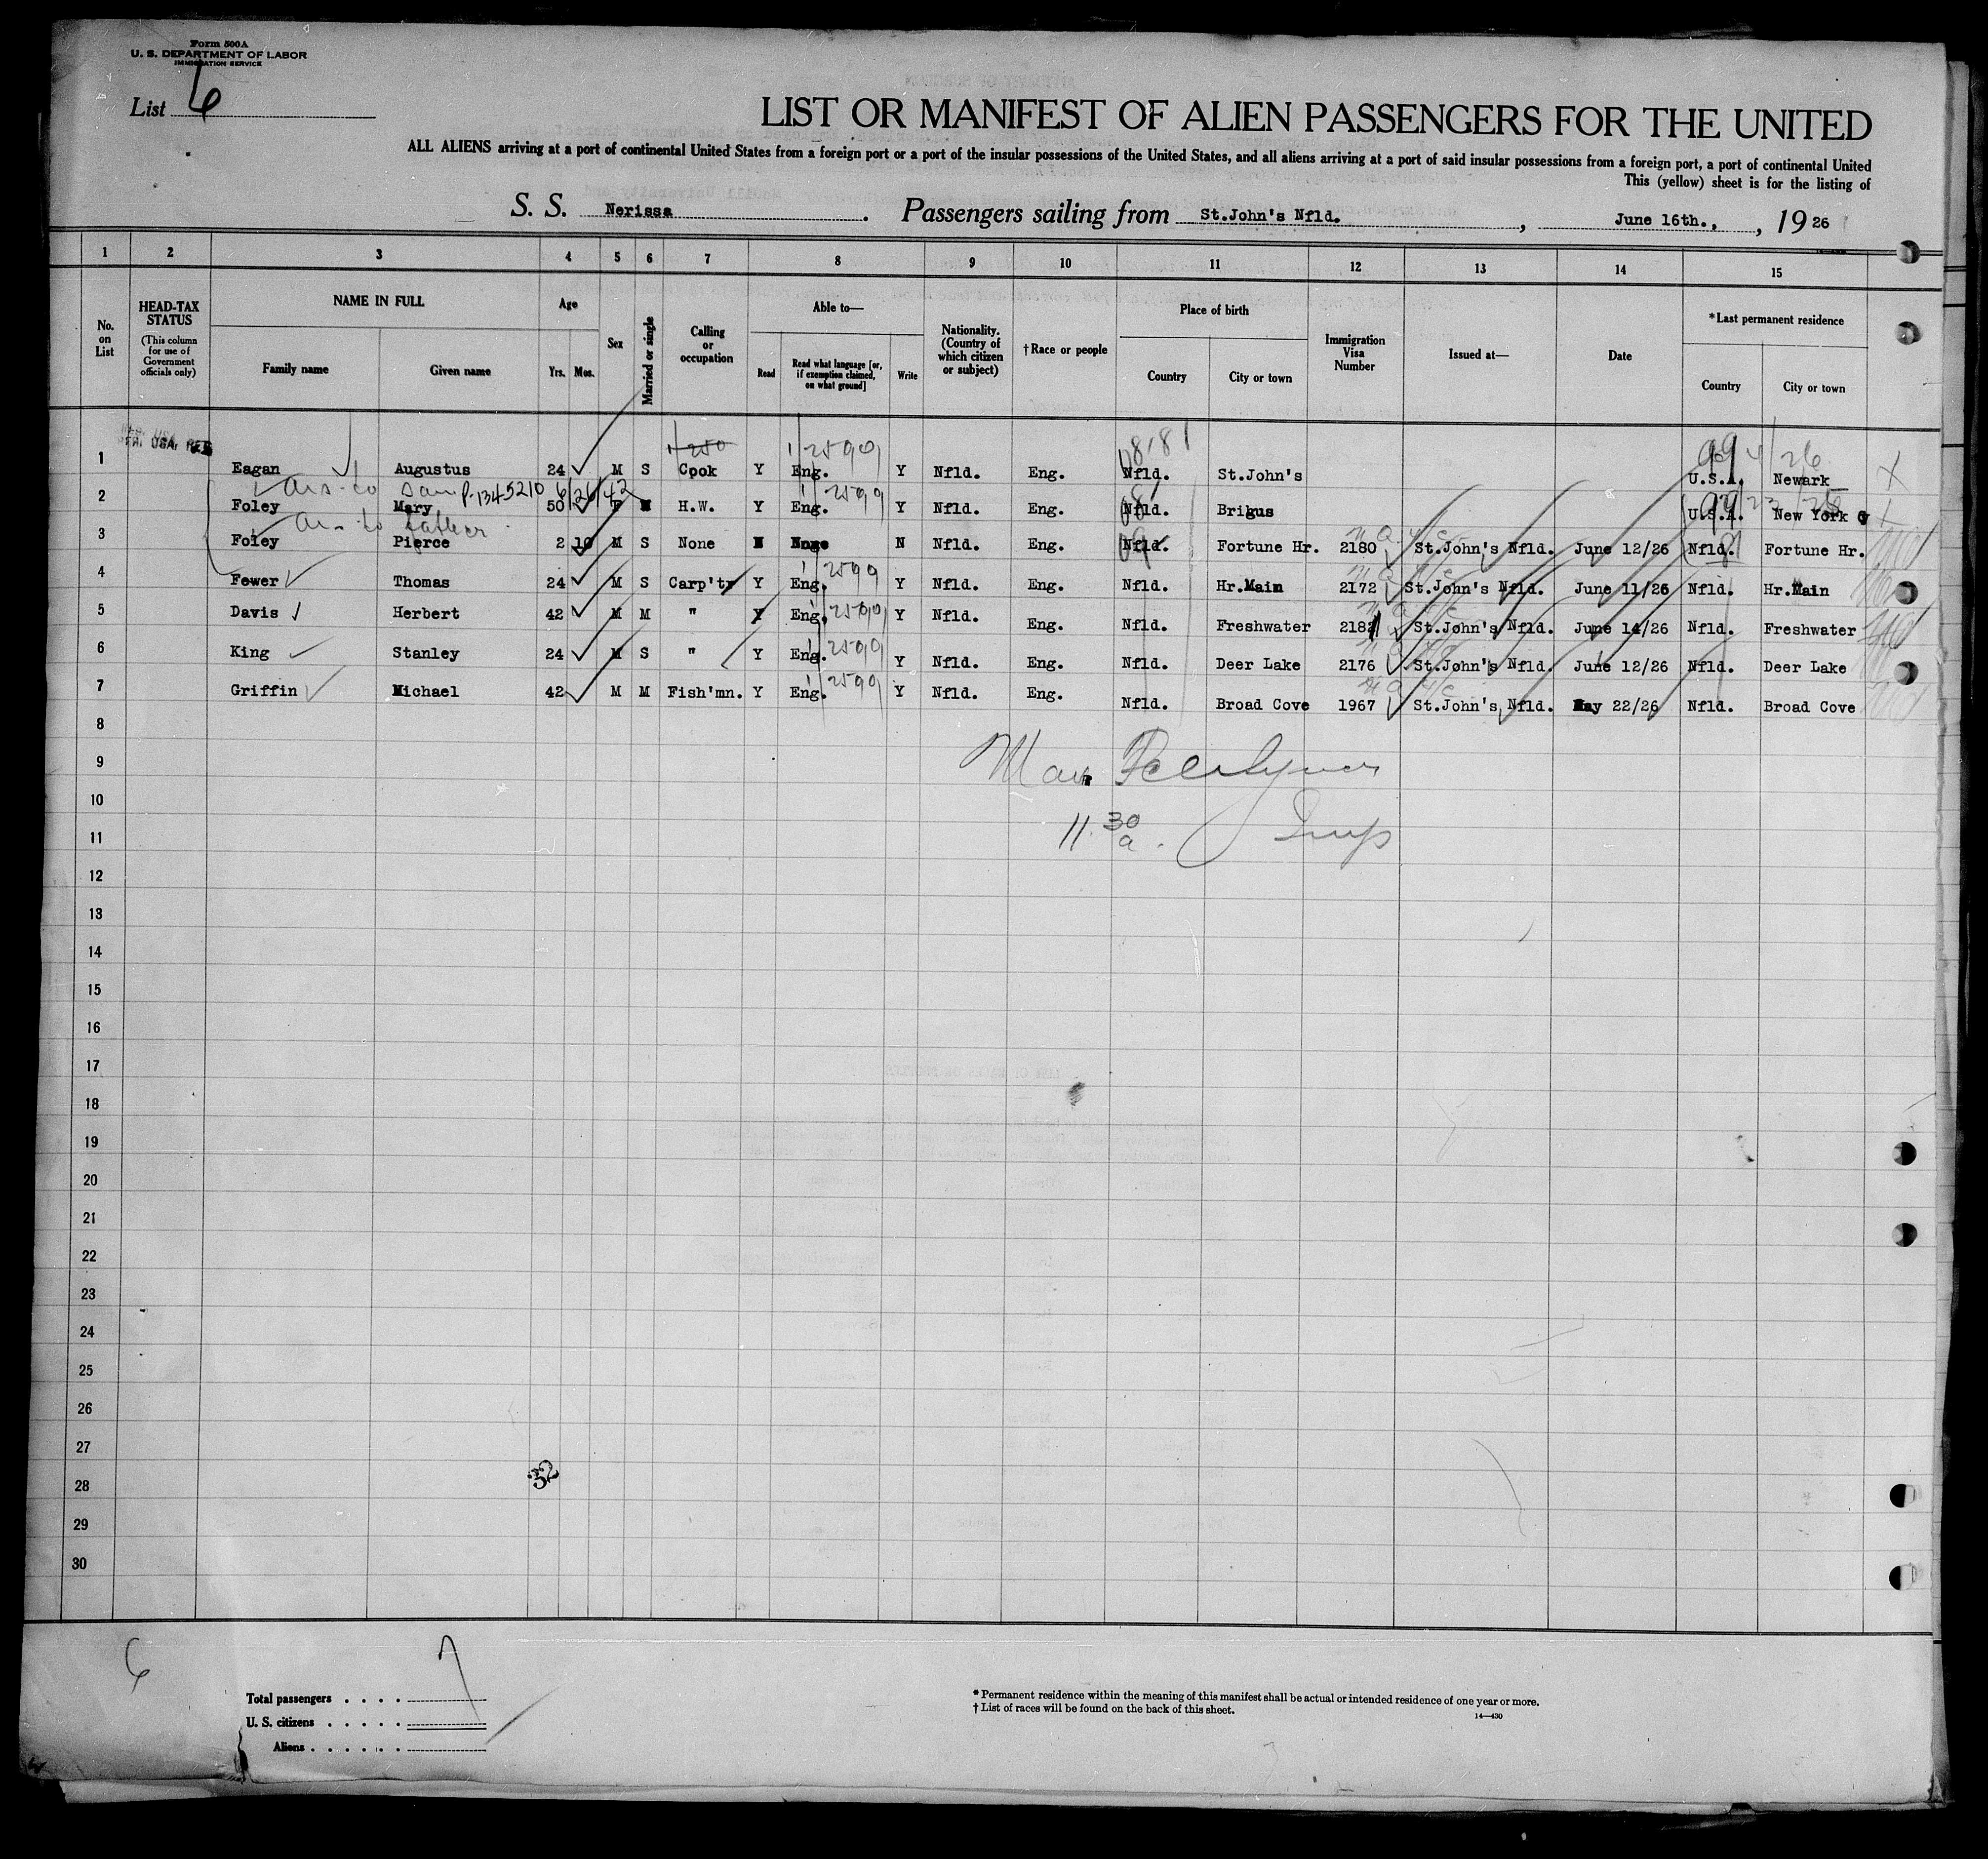 Form 500A
U. S. DEPARTMENT OF LABOR
IMMIGRATION SERVICE
List 6
LIST OR MANIFEST OF ALIEN PASSENGERS FOR THE UNITED
ALL ALIENS arriving at a port of continental United States from a foreign port or a port of the insular possessions of the United States, and all aliens arriving at a port of said insular possessions from a foreign port, a port of continental United
This (yellow) sheet is for the listing of
S. S. Nerissa. Passengers sailing from St.John's Nfld., June 16th., , 19 26
1 2 3 4 5 6 7 8 9 10 11 12 13 14 15
No. on List
HEAD-TAX STATUS (This column for use of Government officials only)
NAME IN FULL
Family name
Given name
Age
Yrs. Mos.
Sex
Married or single
Calling or occupation
Able to—
Read
Read what language [or, if exemption claimed, on what ground]
Write
Nationality. (Country of which citizen or subject)
†Race or people
Place of birth
Country
City or town
Immigration Visa Number
Issued at—
Date
*Last permanent residence
Country
City or town
1 Eagan Augustus 24 M S Cook Y Eng. Y Nfld. Eng. Nfld. St.John's U.S.A. Newark
P-1345210 6/26/42
2 Foley Mary 50 F H.W. Y Eng. Y Nfld. Eng. Nfld. Brigus U.S.A. New York
to father
3 Foley Pierce 2 10 M S None N None N Nfld. Eng. Nfld. Fortune Hr. 2180 St.John's Nfld. June 12/26 Nfld. Fortune Hr.
4 Fewer Thomas 24 M S Carp'tr Y Eng. Y Nfld. Eng. Nfld. Hr.Main 2172 St.John's Nfld. June 11/26 Nfld. Hr.Main
5 Davis Herbert 42 M M " Y Eng. Y Nfld. Eng. Nfld. Freshwater 2181 St.John's Nfld. June 14/26 Nfld. Freshwater
6 King Stanley 24 M S " Y Eng. Y Nfld. Eng. Nfld. Deer Lake 2176 St.John's Nfld. June 12/26 Nfld. Deer Lake
7 Griffin Michael 42 M M Fish'mn. Y Eng. Y Nfld. Eng. Nfld. Broad Cove 1967 St.John's Nfld. May 22/26 Nfld. Broad Cove
8
9
10
11 11 30 a. Insp
12
13
14
15
16
17
18
19
20
21
22
23
24
25
26
27
28 32
29
30
6 7
Total passengers . . . .
U. S. citizens . . . . .
Aliens . . . . . .
* Permanent residence within the meaning of this manifest shall be actual or intended residence of one year or more.
† List of races will be found on the back of this sheet.
14—430